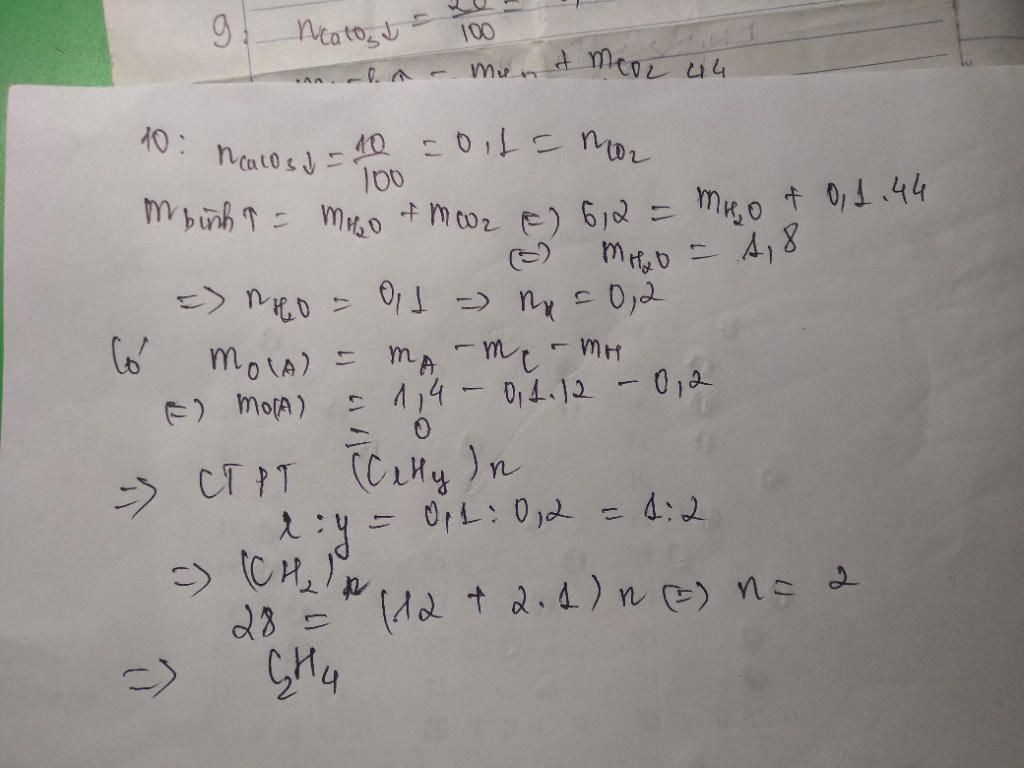 9. nCaCO3↓ = 20/100 =
mH2O + mCO2 44
10: nCaCO3↓ = 10/100 = 0,1 = nCO2
m bình ↑ = mH2O + mCO2 (=) 6,2 = mH2O + 0,1.44
(=) mH2O = 1,8
=> nH2O = 0,1 => nH = 0,2
Có mO(A) = mA - mC - mH
(=) mO(A) = 1,4 - 0,1.12 - 0,2
= 0
=> CTPT (CxHy)n
x:y = 0,1:0,2 = 1:2
=> (CH2)n
28 = (12 + 2.1)n (=) n = 2
=> C2H4